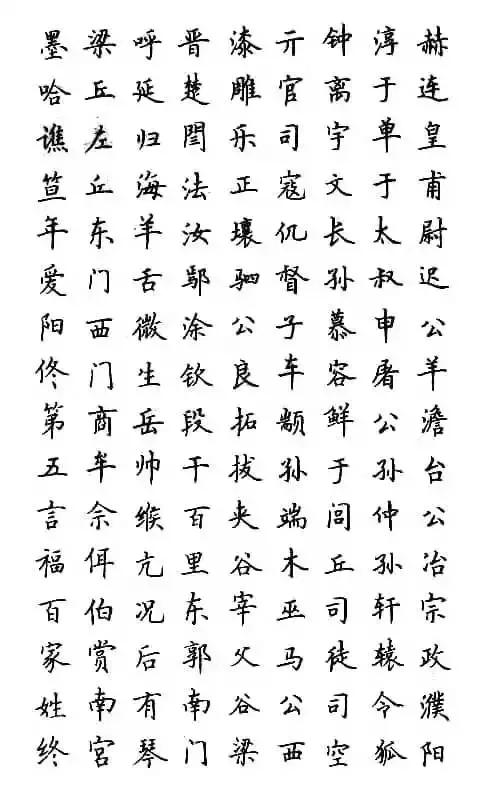 赫连皇甫尉迟公羊澹台公冶宗政濮阳
淳于单于太叔申屠公孙仲孙轩辕令狐
钟离宇文长孙慕容鲜于闾丘司徒司空
亓官司寇仉督子车颛孙端木巫马公西
漆雕乐正壤驷公良拓拔夹谷宰父谷梁
晋楚闫法汝鄢涂钦段干百里东郭南门
呼延归海羊舌微生岳帅缑亢况后有琴
梁丘左丘东门西门商牟佘佴伯赏南宫
墨哈谯笪年爱阳佟第五言福百家姓终